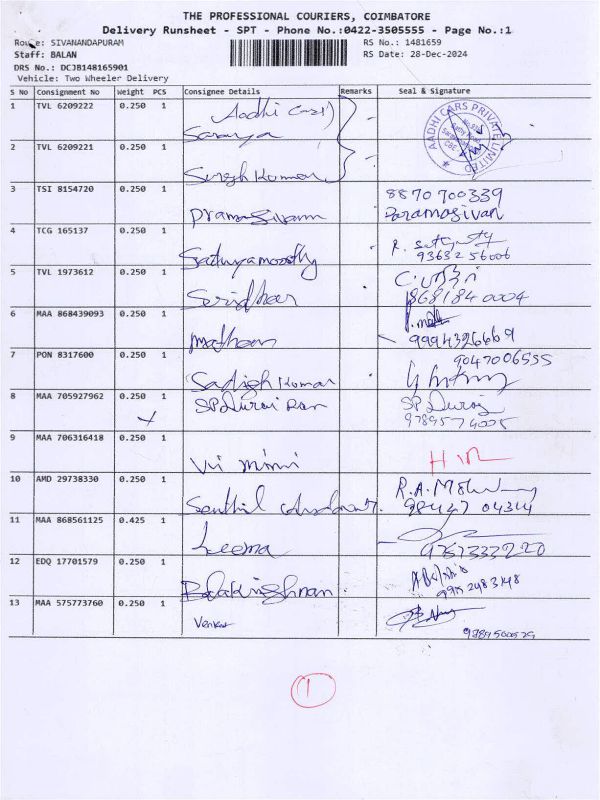 THE PROFESSIONAL COURIERS, COIMBATORE
Delivery Runsheet - SPT - Phone No.:0422-3505555 - Page No.:1
Route: SIVANANDAPURAM RS No.: 1481659
Staff: BALAN RS Date: 28-Dec-2024
DRS No.: DCJB148165901
Vehicle: Two Wheeler Delivery
S No Consignment No Weight PCS Consignee Details Remarks Seal & Signature
1 TVL 6209222 0.250 1 Aadhi Cars
Saranya
AADHI CARS PRIVATE LIMITED
2 TVL 6209221 0.250 1
Suresh Kumar
3 TSI 8154720 0.250 1 8870700339
Paramasivam Paramasivan
4 TCG 165137 0.250 1
Sathyamoorthy 9363256006
5 TVL 1973612 0.250 1
Sridhar 8681840004
6 MAA 868439093 0.250 1
Mathan 9994326669
7 PON 8317600 0.250 1 9047006555
Sadish Kumar
8 MAA 705927962 0.250 1 SP Durai Ran SP Durai
9789574005
9 MAA 706316418 0.250 1
10 AMD 29738330 0.250 1
Senthil 98447 04314
11 MAA 868561125 0.425 1
Leema 9767333220
12 EDQ 17701579 0.250 1
Balakrishnan
13 MAA 575773760 0.250 1
Venkat
1